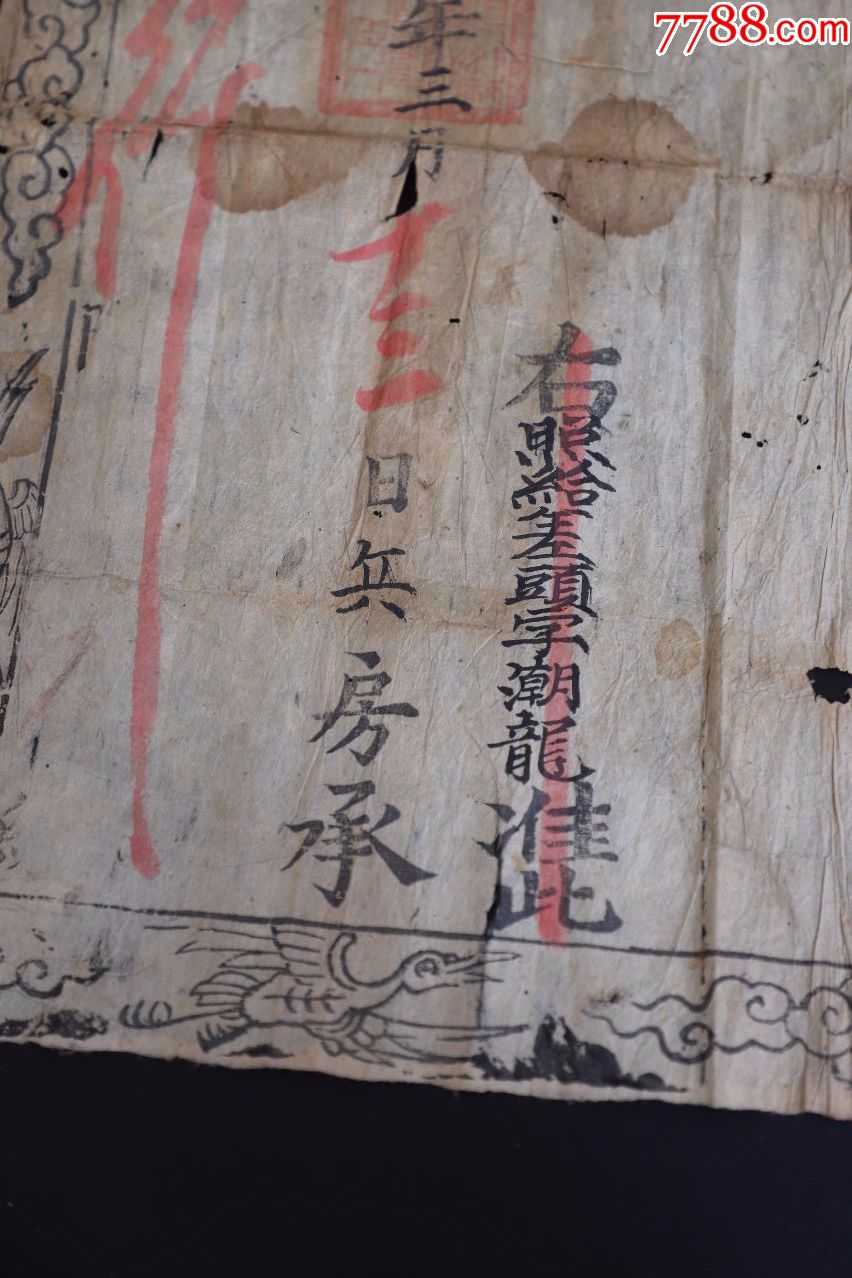 7788.com
右照給差頭字潮龍准此
年三月十二日兵房承
行